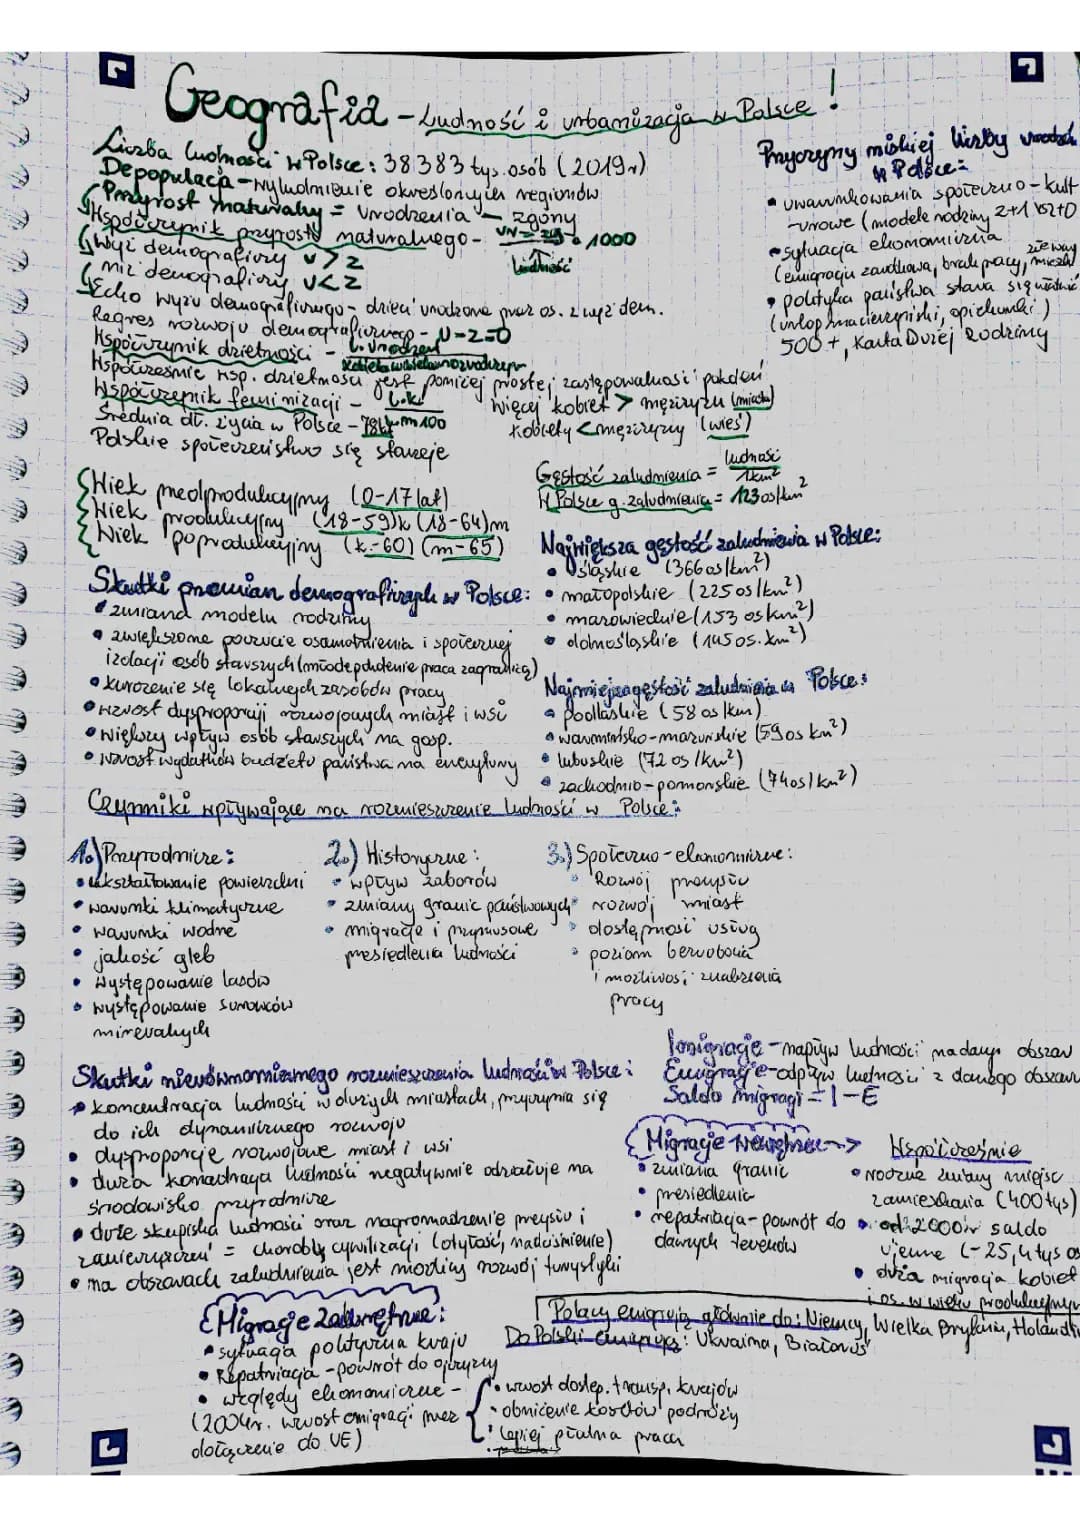 Geografia - Ludność i urbanizacja w Polsce!
Liczba ludności w Polsce: 38 383 tys. osób (2019r)
Depopulacja - wyludnienie określonych regionów
Przyrost naturalny = urodzenia - zgony
Współczynnik przyrostu naturalnego - UŻ - zg · 1000
ludność
wyż demograficzny u > z
niż demograficzny u < z
Echo wyżu demograficznego - dzieci urodzone przez os. z wyż dem.
Regres rozwoju demograficznego - U-z=0
Współczynnik dzietności - l. urodzeń
kobieta w wieku rozrodczym
Współcześnie wsp. dzietności jest poniżej prostej zastępowalności pokoleń
Współczynnik feminizacji - l.k.
l.m · 100
więcej kobiet > mężczyzn (miasta)
kobiety < mężczyzny (wieś)
Średnia dł. życia w Polsce - 78l
Polskie społeczeństwo się starzeje
Przyczyny niskiej liczby urodzeń
w Polsce:
• uwarunkowania społeczno-kult
-urowe (modele rodziny 2+1 2+0
• sytuacja ekonomiczna
(emigracja zarobkowa, brak pracy,
• polityka państwa stara się
(urlop macierzyński, opiekunki)
500+, Karta Dużej Rodziny
Wiek przedprodukcyjny (0-17 lat)
Wiek produkcyjny (18-59)k (18-64)m
Wiek poprodukcyjny (k-60) (m-65)
Gęstość zaludnienia = ludność
1km²
W Polsce g. zaludnienia = 123 os/km²
Skutki przemian demograficznych w Polsce:
• zmiana modelu rodziny
• zwiększone poczucie osamotnienia i społecznej
izolacji osób starszych (młode pokolenie praca zagranicą)
• kurczenie się lokalnych zasobów pracy
• wzrost dysproporcji rozwojowych miast i wsi
• większy wpływ osób starszych na gosp.
• wzrost wydatków budżetu państwa na emerytury
Największa gęstość zaludnienia w Polsce:
• śląskie (366 os/km²)
• małopolskie (225 os/km²)
• mazowieckie (153 os km²)
• dolnośląskie (145 os. km²)
Najmniejsza gęstość zaludnienia w Polsce:
• podlaskie (58 os/km)
• warmińsko-mazurskie (59 os km²)
• lubuskie (72 os/km²)
• zachodnio-pomorskie (74 os/km²)
Czynniki wpływające na rozmieszczenie ludności w Polsce:
1.) Przyrodnicze:
• ukształtowanie powierzchni
• warunki klimatyczne
• warunki wodne
• jakość gleb
• występowanie lasów
• występowanie surowców
mineralnych
2.) Historyczne:
• wpływ zaborów
• zmiany granic państwowych
• migracje i przymusowe
przesiedlenia ludności
3.) Społeczno-ekonomiczne:
• Rozwój przemysłu
rozwój miast
• dostępność usług
• poziom bezrobocia
i możliwość znalezienia
pracy
Skutki nierównomiernego rozmieszczenia ludności w Polsce:
• koncentracja ludności w dużych miastach, przyczynia się
do ich dynamicznego rozwoju
• dysproporcje rozwojowe miast i wsi
• duża koncentracja ludności negatywnie oddziałuje na
środowisko przyrodnicze
• duże skupiska ludności oraz nagromadzenie przemysłu i
zanieczyszczeń = choroby cywilizacji (otyłość, nadciśnienie)
• na obszarach zaludnienia jest możliwy rozwój turystyki
Imigracje - napływ ludności na dany obszar
Emigracje - odpływ ludności z danego obszaru
Saldo migracji = I - E
Migracje wewnętrzne →
• zmiana granic
• przesiedlenia
• repatriacja - powrót do
dawnych terenów
Współcześnie
• roczne zmiany miejsc
zamieszkania (400 tys)
• od 2000r saldo
ujemne (-25,4 tys os
• duża migracja kobiet
i os. w wieku produkcyjnym
Migracje Zewnętrzne:
• sytuacja polityczna kraju
• Repatriacja - powrót do ojczyzny
• względy ekonomiczne -
(2004r. wzrost emigracji przez
dołączenie do UE)
• wzrost dostęp. transp. krajów
• obniżenie kosztów podróży
• lepiej płatna praca
Polacy emigrują głównie do: Niemcy, Wielka Brytania, Holandia
Do Polski emigrują: Ukraina, Białoruś